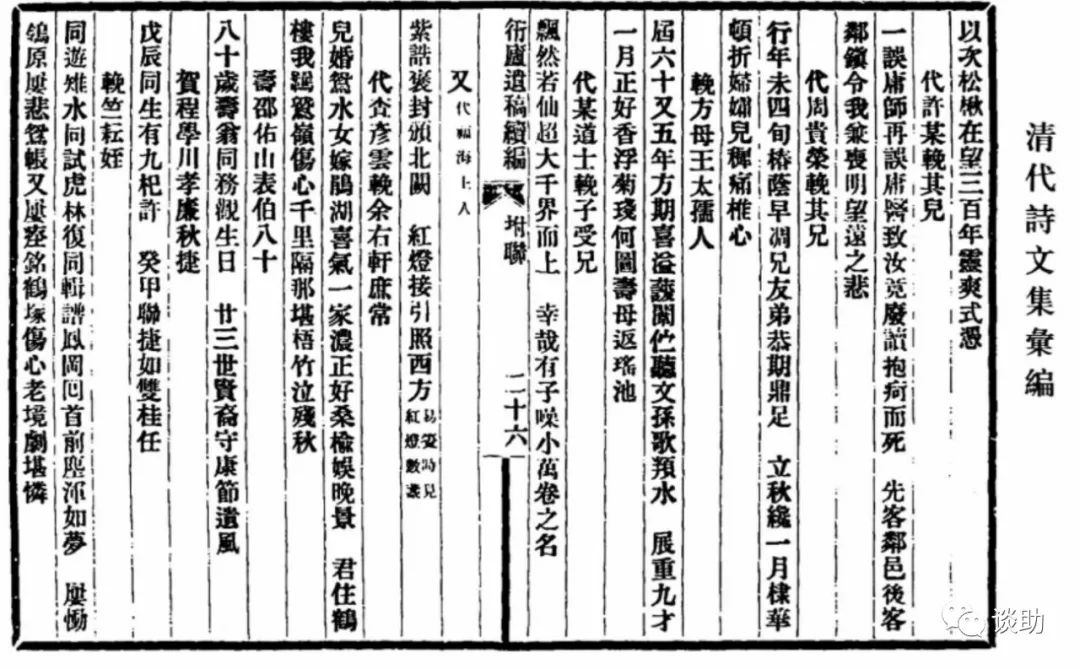 清代詩文集彙編
以次松楸在望三百年靈爽式憑
代許某輓其兒
一誤庸師再誤庸醫致汝竟廢讀抱疴而死 先客鄰邑後客
鄰鎭令我兼喪明望遠之悲
代周貴榮輓其兄
行年未四旬椿蔭早凋兄友弟恭期鼎足 立秋纔一月棣華
頓折婦孀兒穉痛椎心
輓方母王太孺人
屆六十又五年方期喜溢護闈佇聽文孫歌頖水 展重九才
一月正好香浮菊琖何圖壽母返瑤池
代某道士輓子受兄
飄然若仙超大千界而上 幸哉有子噪小萬卷之名
衎廬遺稿續編
坿聯
二十六
又 代 海上人
紫誥褒封頒北闕 紅燈接引照西方 易簀時見紅燈數盞
代查彥雲輓余右軒庶常
兒婚鴛水女嫁鵑湖喜氣一家濃正好桑榆娛晚景 君住鶴
樓我羈鷲嶺傷心千里隔那堪梧竹泣殘秋
壽邵佑山表伯八十
八十歲壽翁同務觀生日 廿三世賢裔守康節遺風
賀程學川孝廉秋捷
戊辰同生有九杞許 癸甲聯捷如雙桂任
輓竺耘姪
同遊雉水同試虎林復同輯譜鳳岡回首前塵渾如夢 屢慟
鴒原屢悲鴛帳又屢痙銘鶴塚傷心老境劇堪憐
谈助